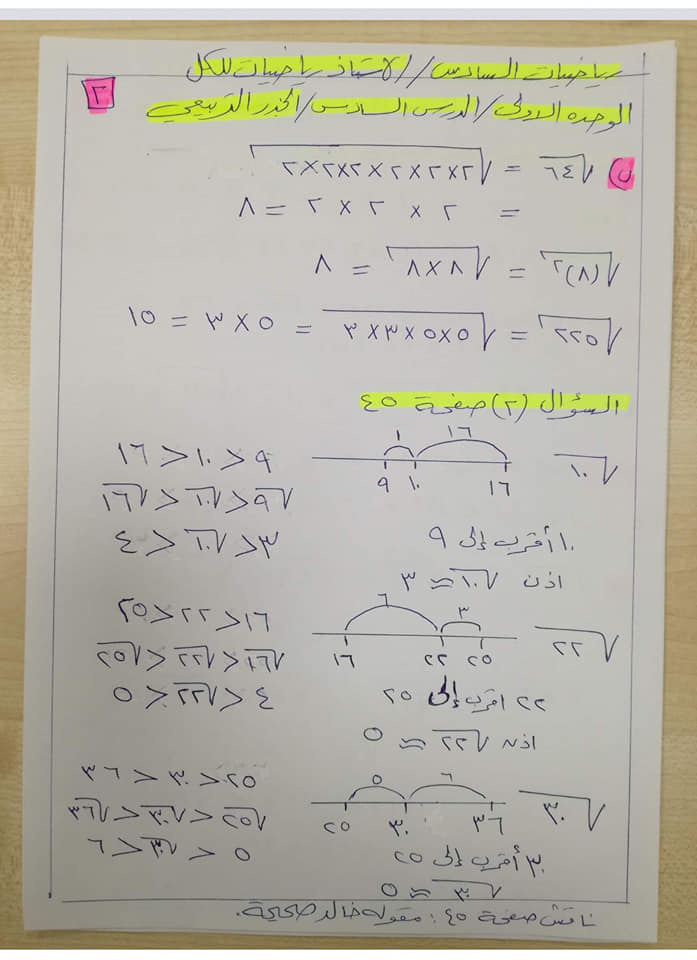 رياضيات السادس // الاستاذ رياضيات للكل
٢
الوحده الاولى / الدرس السادس / الجذر التربيعي
ن) √٦٤ = √٢×٢×٢×٢×٢×٢
= ٢ × ٢ × ٢ = ٨
√(٨)٢ = √٨×٨ = ٨
√٢٢٥ = √٥×٥×٣×٣ = ٥ × ٣ = ١٥
السؤال (٢) صفحة ٤٥
√١٠
١ ١٦
٩ ١٠ ١٦
٩ < ١٠ < ١٦
√٩ < √١٠ < √١٦
٣ < √١٠ < ٤
١٠ أقرب إلى ٩
اذن √١٠ ≈ ٣
√٢٢
٦ ٣
١٦ ٢٢ ٢٥
١٦ < ٢٢ < ٢٥
√١٦ < √٢٢ < √٢٥
٤ < √٢٢ < ٥
٢٢ اقرب إلى ٢٥
اذن √٢٢ ≈ ٥
√٣٠
٥ ٦
٢٥ ٣٠ ٣٦
٢٥ < ٣٠ < ٣٦
√٢٥ < √٣٠ < √٣٦
٥ < √٣٠ < ٦
٣٠ أقرب إلى ٢٥
√٣٠ ≈ ٥
ناقش صفحة ٤٥ : مقولة خالد صحيحة.